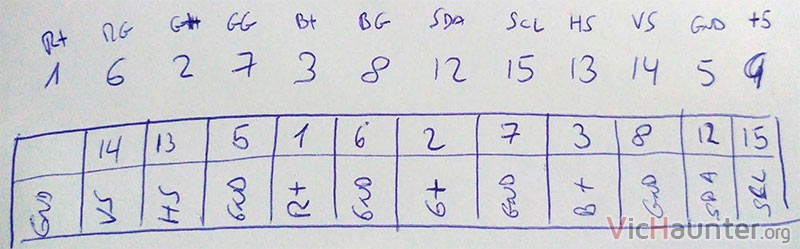 R+ RG G+ GG B+ BG SDA SCL HS VS GND +5
1 6 2 7 3 8 12 15 13 14 5 9
14 13 5 1 6 2 7 3 8 12 15
GND VS HS GND R+ GND G+ GND B+ GND SDA SCL
VicHaunter.org